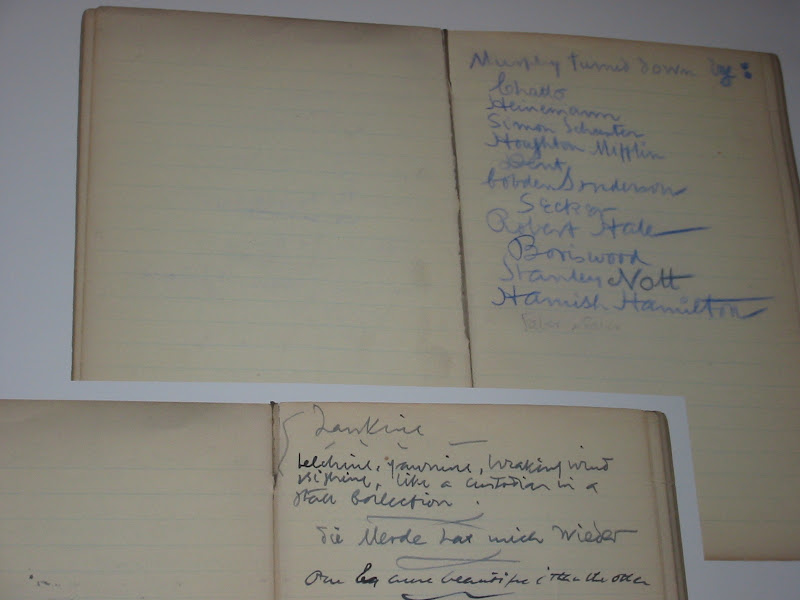 Murphy turned down by :
Chatto
Heinemann
Simon Schuster
Houghton Mifflin
Dent
Cobden Sanderson
Secker
Robert Hale
Boriswood
Stanley Nott
Hamish Hamilton
Faber + Faber
belching, yawning, breaking wind
like a custodian in a
State Collection .
die Merde hat mich wieder
One more beautiful than the other